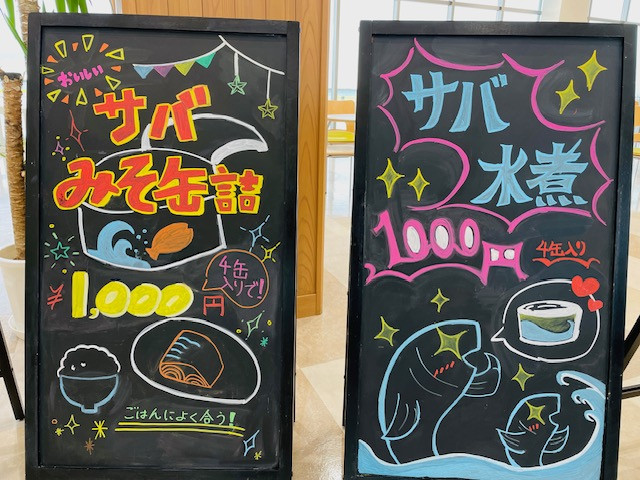 おいしい
サバ
みそ缶詰
¥1,000円
4缶
入りで!
ごはんによく合う!
サバ
水煮
1000円
4缶入り